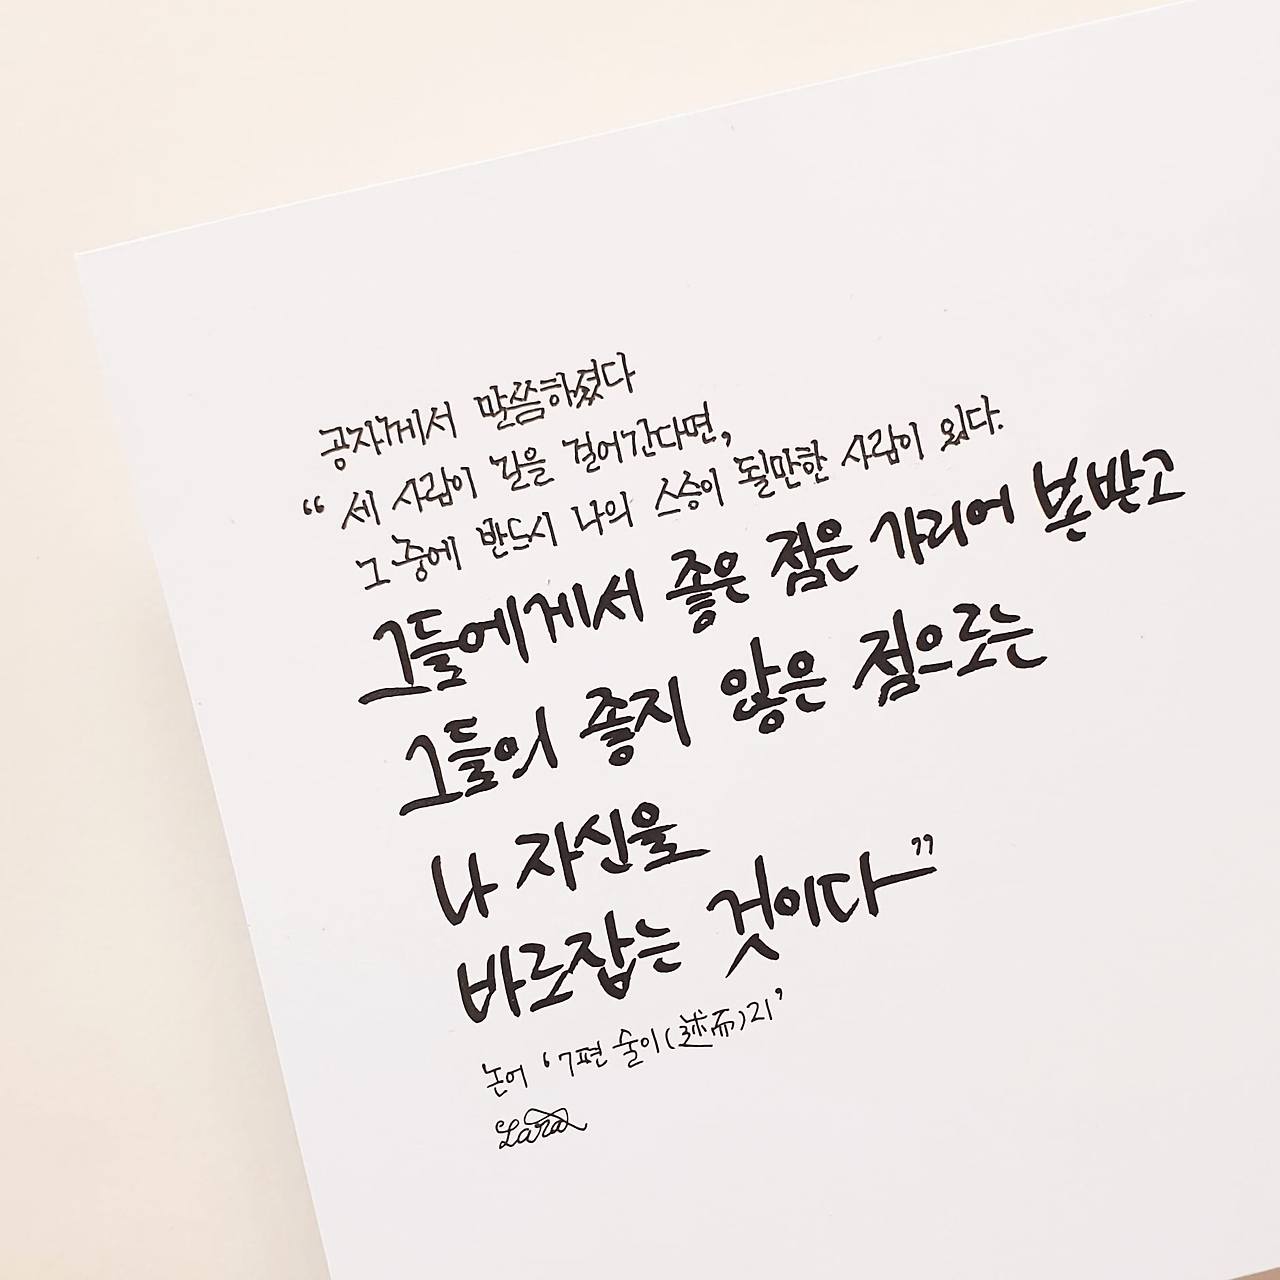 공자께서 말씀하셨다
“세 사람이 길을 걸어간다면,
그 중에 반드시 나의 스승이 될만한 사람이 있다.
그들에게서 좋은 점은 가리어 본받고
그들의 좋지 않은 점으로는
나 자신을
바로잡는 것이다”
논어 ‘7편 술이(述而)21’
Lara